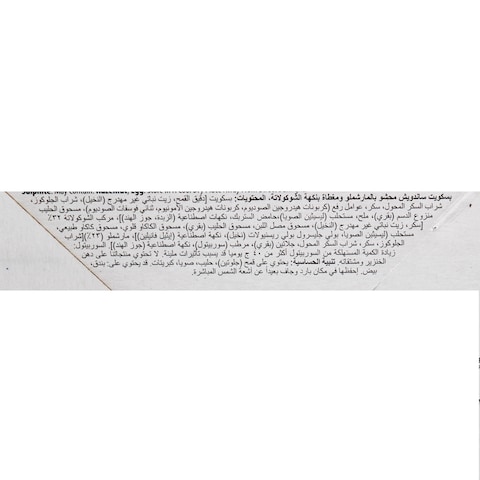 Sulphite. May contain: Hazelnut, Egg.
بسكويت ساندويش محشو بالمارشملو ومغطاة بنكهة الشوكولاتة. المحتويات: بسكويت [دقيق القمح، زيت نباتي غير مهدرج (النخيل)، شراب الجلوكوز،
شراب السكر المحول، سكر، عوامل رفع (كربونات هيدروجين الصوديوم، كربونات هيدروجين الأمونيوم، ثنائي فوسفات الصوديوم)، مسحوق الحليب
منزوع الدسم (بقري)، ملح، مستحلب (ليسيثين الصويا)،حامض الستريك، نكهات اصطناعية (الزبدة، جوز الهند)]، مركب الشوكولاتة ٣٢٪
[سكر، زيت نباتي غير مهدرج (النخيل)، مسحوق مصل اللبن، مسحوق الحليب (بقري)، مسحوق الكاكاو قلوي، مسحوق كاكاو طبيعي،
مستحلب (ليسيثين الصويا، بولي جليسرول بولي ريسينولات (نخيل)، نكهة اصطناعية (إيثيل فانيلين)]، مارشملو (٢٣٪)[شراب
الجلوكوز، سكر، شراب السكر المحول، جلاتين (بقري)، مرطب (سوربيتول)، نكهة اصطناعية (جوز الهند)]. السوربيتول:
زيادة الكمية المستهلكة من السوربيتول أكثر من ٤٠ ج يوميا قد يسبب تأثيرات ملينة. لا تحتوي منتجاتنا على دهن
الخنزير ومشتقاته. تنبيه الحساسية: يحتوي على قمح (جلوتين)، حليب، صويا، كبريتات. قد يحتوي على: بندق،
بيض. إحفظها في مكان بارد وجاف بعيداً عن أشعة الشمس المباشرة.